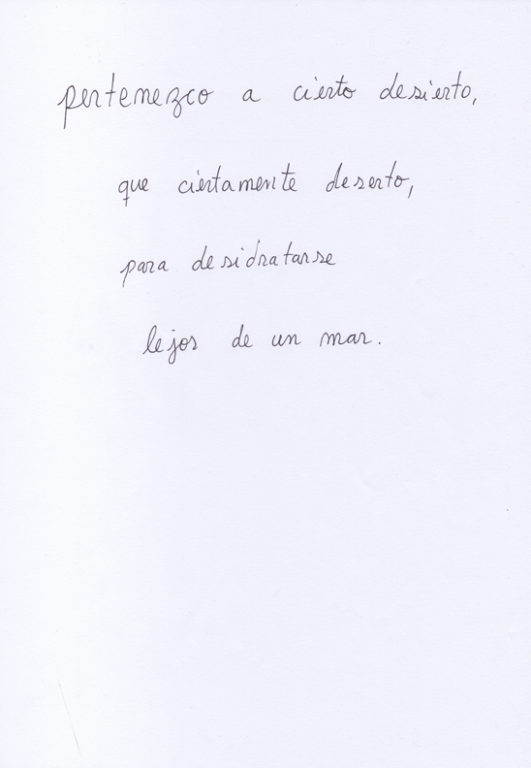 pertenezco a cierto desierto,
que ciertamente deserto,
para desidratarse
lejos de un mar.